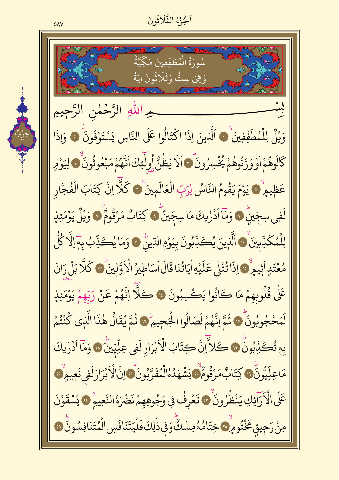 الجزء الثلاثون
٥٨٧
سورة المطففين مكية
وهي ست وثلاثون آية
بسم الله الرحمن الرحيم
ويل للمطففين ﴿١﴾ الذين اذا اكتالوا على الناس يستوفون ﴿٢﴾ واذا
كالوهم او وزنوهم يخسرون ﴿٣﴾ الا يظن اولئك انهم مبعوثون ﴿٤﴾ ليوم
عظيم ﴿٥﴾ يوم يقوم الناس لرب العالمين ﴿٦﴾ كلا ان كتاب الفجار
لفى سجين ﴿٧﴾ وما ادريك ما سجين ﴿٨﴾ كتاب مرقوم ﴿٩﴾ ويل يومئذ
للمكذبين ﴿١٠﴾ الذين يكذبون بيوم الدين ﴿١١﴾ وما يكذب به الا كل
معتد اثيم ﴿١٢﴾ اذا تتلى عليه اياتنا قال اساطير الاولين ﴿١٣﴾ كلا بل ران
على قلوبهم ما كانوا يكسبون ﴿١٤﴾ كلا انهم عن ربهم يومئذ
لمحجوبون ﴿١٥﴾ ثم انهم لصالوا الجحيم ﴿١٦﴾ ثم يقال هذا الذى كنتم
به تكذبون ﴿١٧﴾ كلا ان كتاب الابرار لفى عليين ﴿١٨﴾ وما ادريك
ما عليون ﴿١٩﴾ كتاب مرقوم ﴿٢٠﴾ يشهده المقربون ﴿٢١﴾ ان الابرار لفى نعيم ﴿٢٢﴾
على الارائك ينظرون ﴿٢٣﴾ تعرف فى وجوههم نضرة النعيم ﴿٢٤﴾ يسقون
من رحيق مختوم ﴿٢٥﴾ ختامه مسك وفى ذلك فليتنافس المتنافسون ﴿٢٦﴾